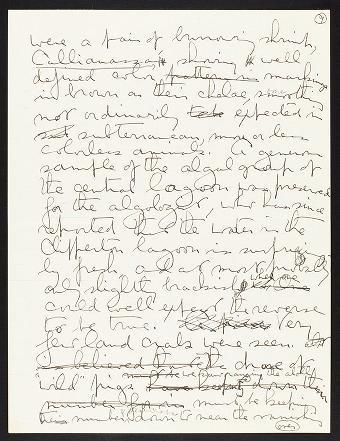 4
were a pair of burrowing shrimp,
Callianassa, showing well
defined color pattern in markings
in brown on their chelae, something
not ordinarily to be expected in
subterranean, more or less
colorless animals. A generous
sample of the algal growth of
the central lagoon was preserved
for the algologist, who has since
reported that the water in the
Clipperton lagoon is surprisingly
fresh and at most
slightly brackish when one
could well expect the reverse
to be true. Very
few land crabs were seen. also
I believed that the drove of
"wild" pigs must be keeping down their
number
numbers down to near the vanishing
(over)